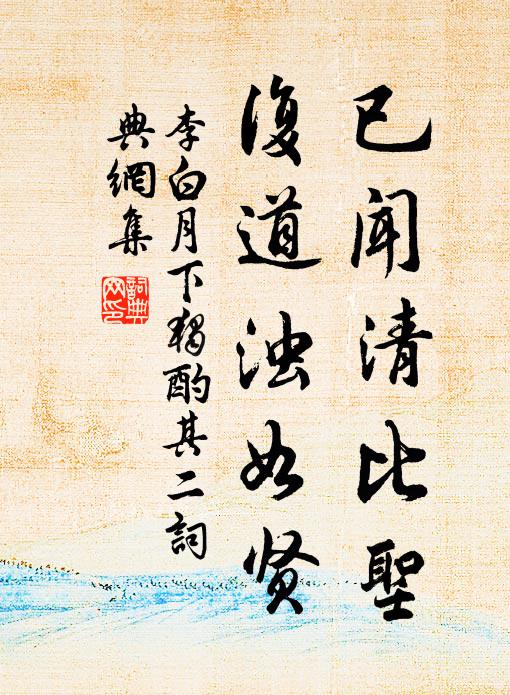 已闻清比聖
復道浊如贤
李白月下獨酌其二詞
典網集
詞典網印